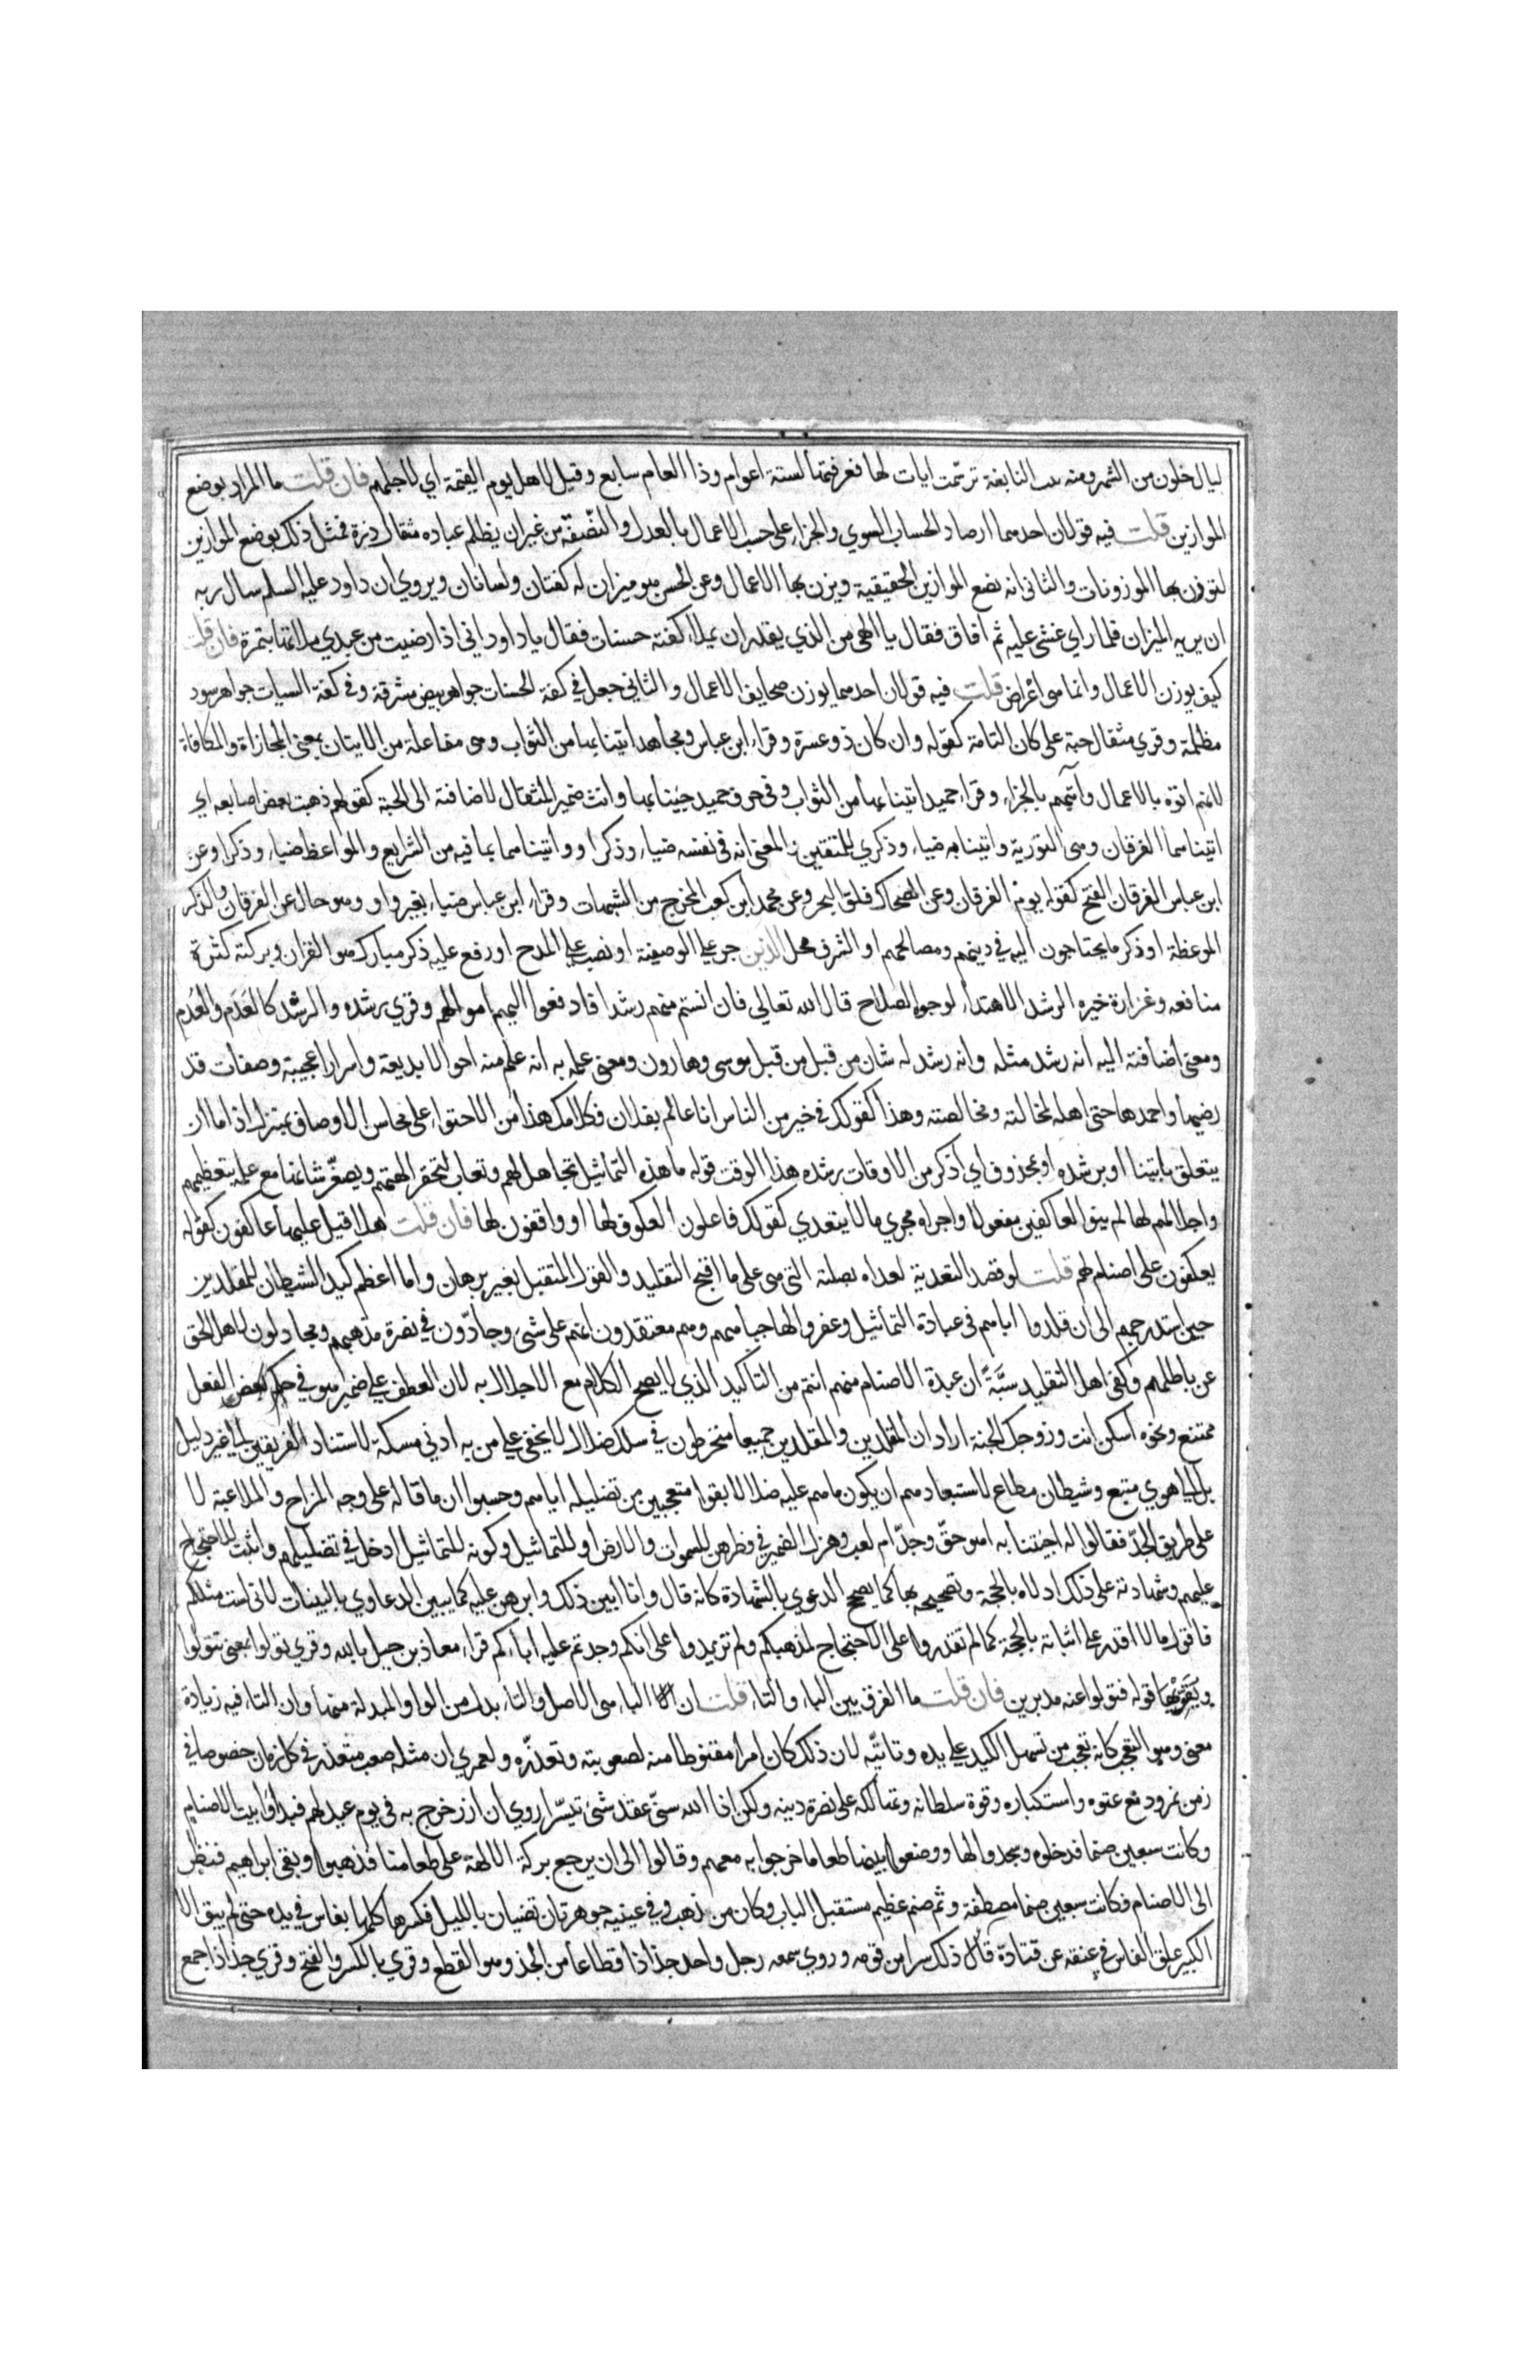 ليال خلون من الشهر ومنه بيت النابغة ترسمت ايات لها فعرفتها لستة اعوام وذا العام سابع وقيل لاهل يوم القيمة اي لاجلهم فان قلت ما المراد بوضع
الموازين قلت فيه قولان احدهما ارصاد الحساب السوي والجزاء على حسب الاعمال بالعدل والنصفة من غير ان يظلم عباده مثقال ذرة فمثل ذلك بوضع الموازين
لتوزن بها الموزونات والثاني انه يضع الموازين الحقيقية ويزن بها الاعمال وعن الحسن هو ميزان له كفتان ولسانان ويروي ان داود عليه السلم سال ربه
ان يريه الميزان فلما راي غشي عليه ثم افاق فقال يا الهي من الذي يقدر ان يملا كفته حسنات فقال يا داود اني اذا رضيت من عبدي ملاتها بتمرة فان قلت
كيف يوزن الاعمال وانما هي اعراض قلت فيه قولان احدهما يوزن صحايف الاعمال والثاني جعل في كفة الحسنات جواهر بيض مشرقة وفي كفة السيات جواهر سود
مظلمة وقري مثقال حبة على كان التامة كقوله وان كان ذو عسرة وقراء ابن عباس ومجاهد اتينا بها من الثواب وهي مفاعلة من الاتيان بمعني المجازاة والمكافاة
لانهم اتوه بالاعمال واتيهم بالجزاء وقراء حميد اتينا بها من الثواب وفي حرف حميد جينا بها وانث ضمير المثقال لاضافته الى الحبة كقولهم ذهبت بعض اصابعه اي
اتيناهما الفرقان وهي التورية واتينا به ضياء وذكري للمتقين والمعني انه في نفسه ضياء وذكرا او واتيناهما بما فيه من الشرايع والمواعظ ضياء وذكرا وعن
ابن عباس الفرقان الفتح كقوله يوم الفرقان وعن الضحاك فلق البحر وعن محمد ابن كعب المخرج من الشبهات وقراء ابن عباس ضياء بغير واو وهو حال عن الفرقان والذكر
الموعظة او ذكر ما يحتاجون اليه في دينهم ومصالحهم او الشرف محل الذين جر على الوصفية او نصب على المدح او رفع عليه ذكر مبارك هو القران وبركته كثرة
منافعه وغزارة خيره الرشد الاهتداء لوجوه الصلاح قال الله تعالي فان انستم منهم رشدا فادفعوا اليهم اموالهم وقري رشده والرشد كالعدم والعدم
ومعني اضافته اليه انه رشد مثله وانه رشد له شان من قبل من قبل موسى وهارون ومعني علمه به انه علم منه احوالا بديعة واسرارا عجيبة وصفات قد
رضيها واحمدها حتى اهله لمخالته ومخالصته وهذا كقولك في خير من الناس انا عالم بفلان فكلامك هذا من الاحتواء على محاسن الاوصاف بمنزل اذ اما ان
يتعلق باتينا او برشده او بمحذوف اي اذكر من الاوقات رشده هذا الوقت قوله ما هذه التماثيل تجاهل لهم وتغاب لتحقر الهتهم ويصغر شانها مع علمه بتعظيمهم
واجلالهم لها لم ينو للعاكفين مفعولا واجراه مجري ما لا يتعدي كقولك فاعلون العكوف لها او واقفون لها فان قلت هلا قيل عليها عاكفون كقوله
يعكفون على اصنام لهم قلت لو قصد التعدية لعداه بصلته التي هي على ما اقبح التقليد والقول المتقبل بغير برهان وما اعظم كيد الشيطان للمقلدين
حين استدرجهم الى ان قلدوا اباهم في عبادة التماثيل وعفروا لها جباههم وهم معتقدون انهم على شئ وجادون في نصرة مذهبهم ومجادلون لاهل الحق
عن باطلهم وكفي اهل التقليد سبة ان عبدة الاصنام منهم انتم من التاكيد الذي لا يصح الكلام مع الاخلال به لان العطف على ضمير هو في حكم بعض الفعل
ممتنع ونحوه اسكن انت وزوجك الجنة اراد ان المقلدين والمقلدين جميعا منخرطون في سلك ضلال لا يخفي على من به ادني مسكة لاستناد الفريقين الى غير دليل
بل الى هوي متبع وشيطان مطاع لاستبعادهم ان يكون ما هم عليه ضلالا بقوا متعجبين من تضليله اياهم وحسبوا ان ما قاله على وجه المزاح والملاعبة لا
على طريق الجد فقالوا له اجئتنا به اهو حق وجد ام لعب وهزل الضمير في فطرهن للسموات والارض او للتماثيل وكونه للتماثيل ادخل في تضليلهم واثبت للاحتجاج
عليهم وشهادته على ذلك ادلاه بالحجة وتصحيحه بها كما يصحح الدعوي بالشهادة كانه قال وانا ابين ذلك وابرهن عليه كما يبين الدعاوي بالبينات لاني لست مثلكم
فاقول ما لا اقدر على اثباته بالحجة كما لم تقدروا على الاحتجاج لمذهبكم ولم تزيدوا على انكم وجدتم عليه اباءكم قراء معاذ بن جبل بالله وقري تولوا بمعني تتولوا
ويقويها قوله فتولوا عنه مدبرين فان قلت ما الفرق بين الباء والتاء قلت ان الباء هي الاصل والتاء بدل من الواو المبدلة منها وان التاء فيه زيادة
معني وهو التعجب كانه تعجب من تسهل الكيد على يده وتاتيه لان ذلك كان امرا مقنوطا منه لصعوبته وتعذره ولعمري ان مثله صعب متعذر في كل زمان خصوصا في
زمن نمرود مع عتوه واستكباره وقوة سلطانه وتهالكه على نصرة دينه ولكن اذا الله سني عقد شئ تيسرا روي ان ازر خرج به في يوم عيد لهم فبداوا ببيت الاصنام
وكانت سبعين صنما فدخلوه وسجدوا لها ووضعوا بينها طعاما خرجوا به معهم وقالوا الى ان يرجع بركة الالهة على طعامنا فذهبوا وبقي ابراهيم فنظر
الى الاصنام فكانت سبعين صنما مصطفة وثم صنم عظيم مستقبل الباب وكان من ذهب وفي عينيه جوهرتان تضيان بالليل فكسرها كلها بفاس في يده حتى لم يبق الا
الكبير علق الفاس في عنقه عن قتادة قال ذلك سرا من قومه وروي سمعه رجل واحد جذاذا قطاعا من الجذ وهو القطع وقري بالكسر والفتح وقري جذذا جمع